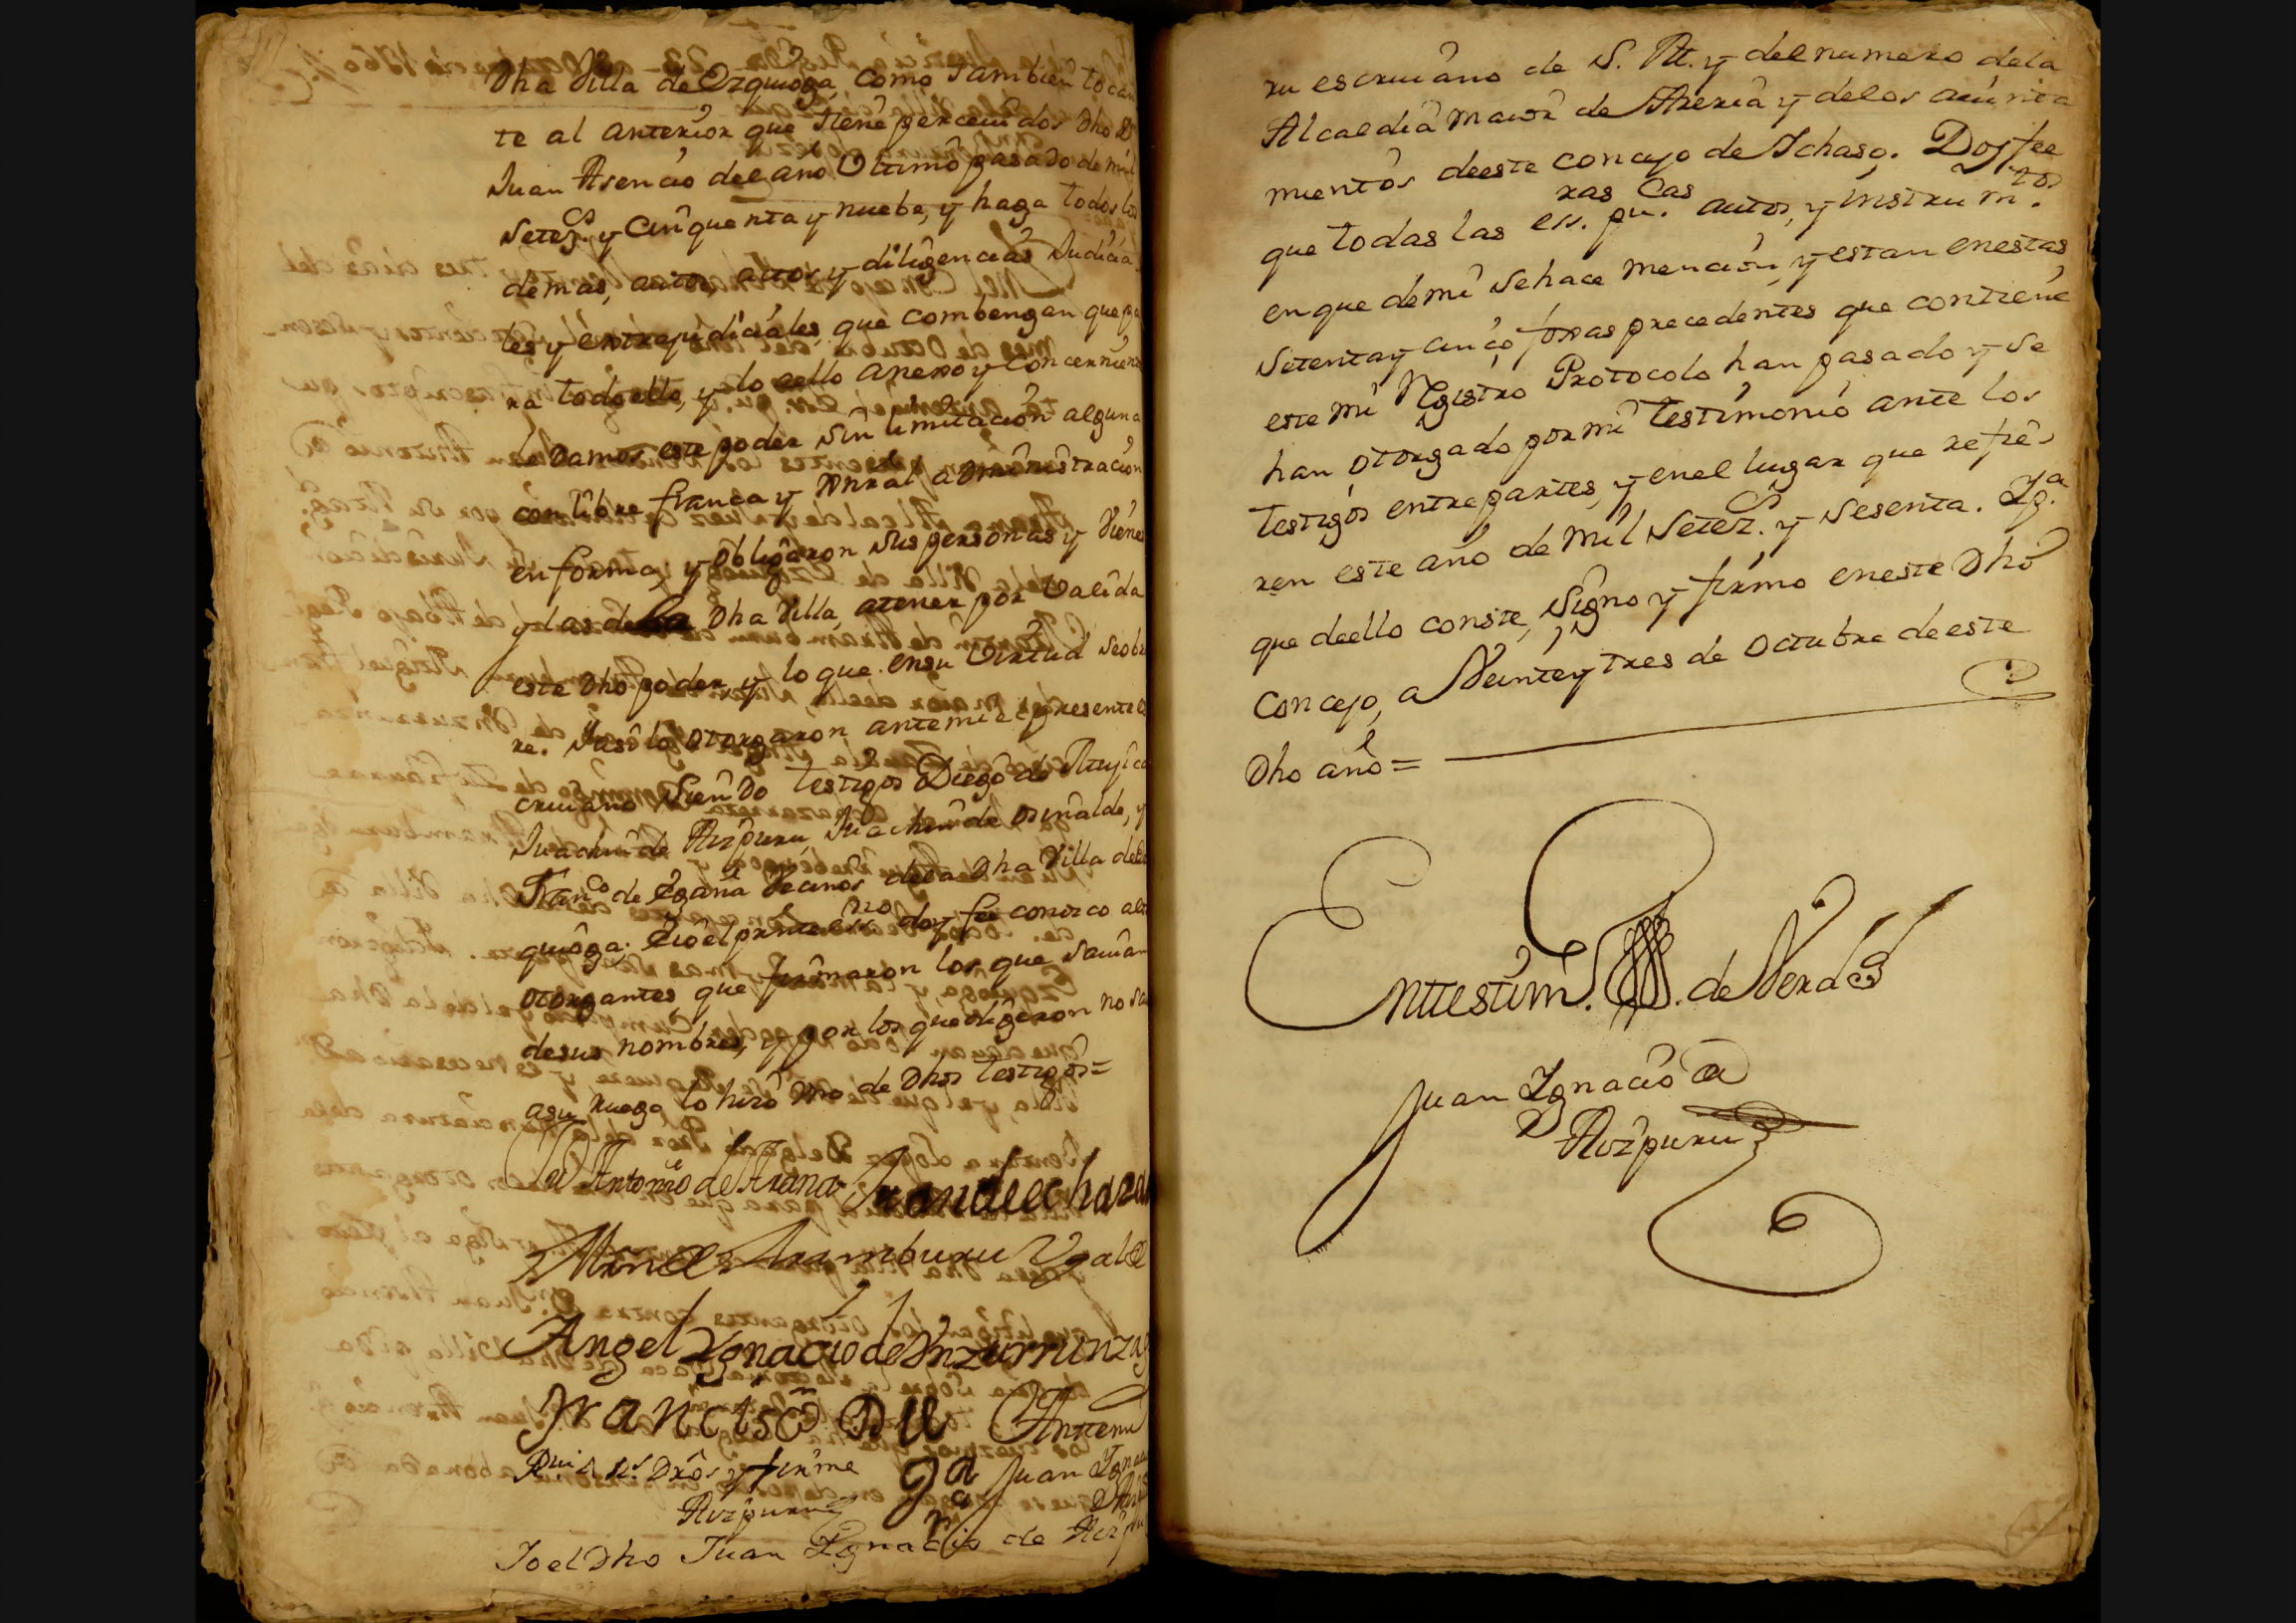 Dha Villa de Ezquioga, como tambien tocan
te al anterior que tiene percenidos Dho Dn
Juan Asencio del año Vltimo pasado de mil
Setezs. y Cinquenta y nuebe, y haga todos los
demas, autos, actos y diligencias Judicia
les y extrajudiciales, que combengan que pa
ra todo ello, y lo aello anexo y concerniente
le Damos este poder sin limitacion alguna
con libre franca y Xnral administracion
en forma, y obligaron sus personas y Vienes
y las de la Dha Villa, atener por valida
este Dho poder, y lo que ensu Virtud seobra
re. Yasi lo otorgaron antemi el presente es
criuano siendo testigos Diego de
Juachin de Aizpuru, Juachin de osinalde, y
Franco. de Egaña Vecinos dela Dha Villa de Ez
quioga. E io el prnte essno doy fee conozco alos
otorgantes, que firmaron los que sauian
desus nombres, y por los que digeron no sa
asu ruego lo hizo vno de Dhos testigos=
Ju Antonio de Arana Juan de echaza
Aramburu Vgalde
Angel Ygnacio de Ynzurrunzaga
Francisco De Anttemi
dros y firme ga Juan Ygna
Aizpuru
Io el Dho Juan Ygnacio de Aizpu
ru escriuano de S. M. y del numero dela
Alcaldia maior de Areria y delos aiunta
mientos deeste concejo de Ichaso. Doy fee
que todas las essras. pucas. autos, y instrumtos.
en que demi sehace mencion, y estan enestas
setenta y cinco foxas precedentes que contiene
este mi Registro Protocolo han pasado y se
han otorgado por mi testimonio ante los
testigos entre partes, y enel lugar que refie
ren este año de mil Setezs. y sesenta. Ypa.
que deello conste, signo y firmo eneste Dho
Concejo, a Veinte y tres de octubre de este
Dho año=
Enttestim. de Verdad
Juan Ygnacio de
Aizpuru